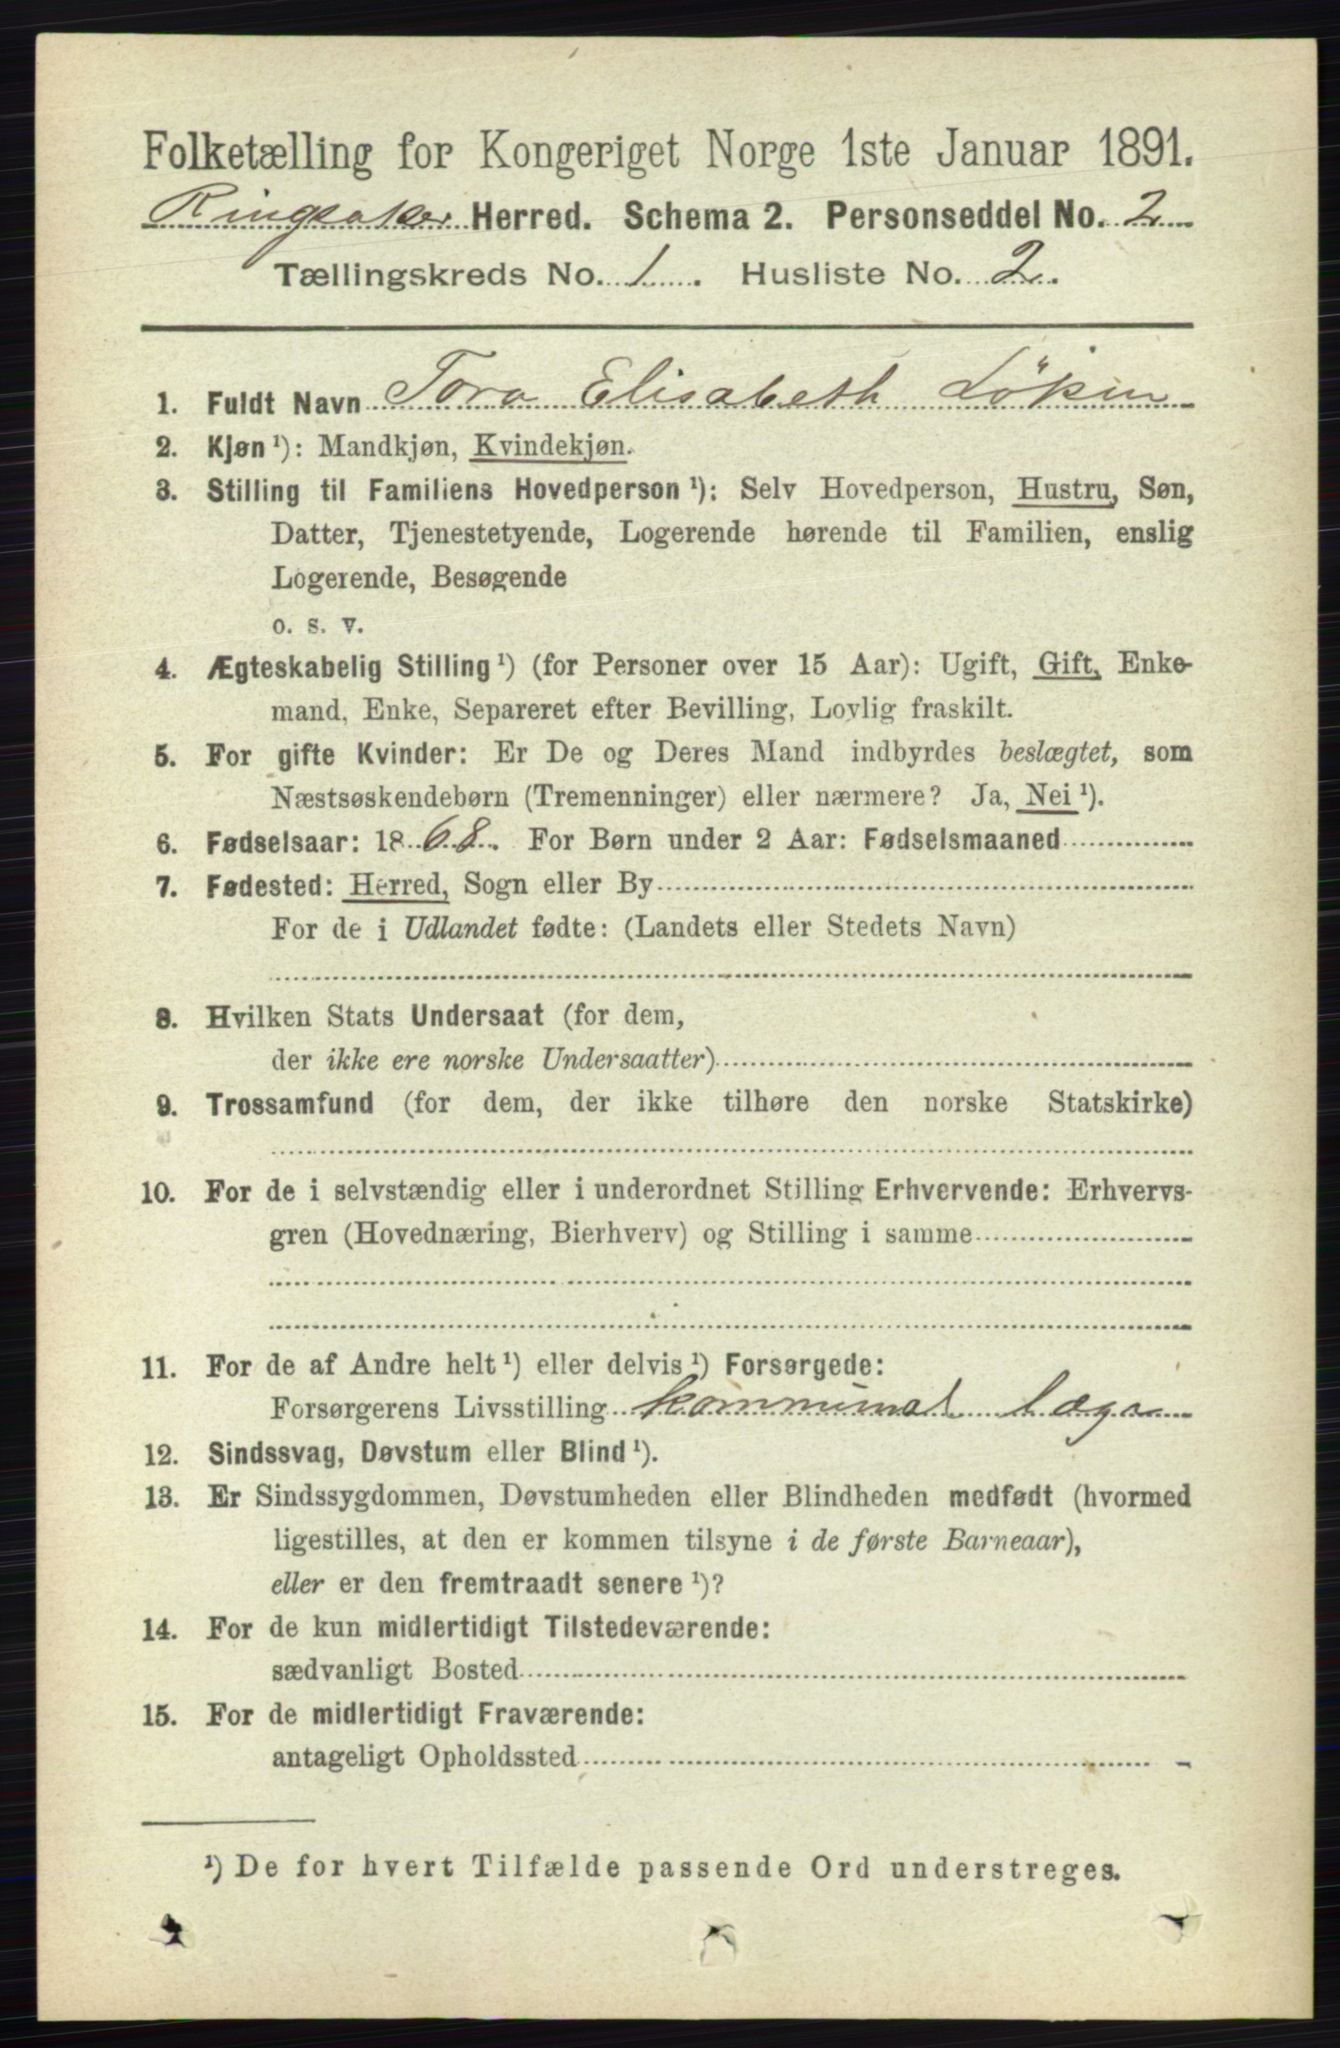 Folketælling for Kongeriget Norge 1ste Januar 1891.
Ringsaker Herred. Schema 2. Personseddel No. 2
Tællingskreds No. 1. Husliste No. 2.
1. Fuldt Navn Tora Elisabeth Löken
2. Kjøn ¹): Mandkjøn, Kvindekjøn.
3. Stilling til Familiens Hovedperson ¹): Selv Hovedperson, Hustru, Søn,
Datter, Tjenestetyende, Logerende hørende til Familien, enslig
Logerende, Besøgende
o. s. v.
4. Ægteskabelig Stilling ¹) (for Personer over 15 Aar): Ugift, Gift, Enke-
mand, Enke, Separeret efter Bevilling, Lovlig fraskilt.
5. For gifte Kvinder: Er De og Deres Mand indbyrdes beslægtet, som
Næstsøskendebørn (Tremenninger) eller nærmere? Ja, Nei ¹).
6. Fødselsaar: 1868. For Børn under 2 Aar: Fødselsmaaned
7. Fødested: Herred, Sogn eller By
For de i Udlandet fødte: (Landets eller Stedets Navn)
8. Hvilken Stats Undersaat (for dem,
der ikke ere norske Undersaatter)
9. Trossamfund (for dem, der ikke tilhøre den norske Statskirke)
10. For de i selvstændig eller i underordnet Stilling Erhvervende: Erhvervs-
gren (Hovednæring, Bierhverv) og Stilling i samme
11. For de af Andre helt ¹) eller delvis ¹) Forsørgede:
Forsørgerens Livsstilling kommunal læge
12. Sindssvag, Døvstum eller Blind ¹).
13. Er Sindssygdommen, Døvstumheden eller Blindheden medfødt (hvormed
ligestilles, at den er kommen tilsyne i de første Barneaar),
eller er den fremtraadt senere ¹)?
14. For de kun midlertidigt Tilstedeværende:
sædvanligt Bosted
15. For de midlertidigt Fraværende:
antageligt Opholdssted
¹) De for hvert Tilfælde passende Ord understreges.